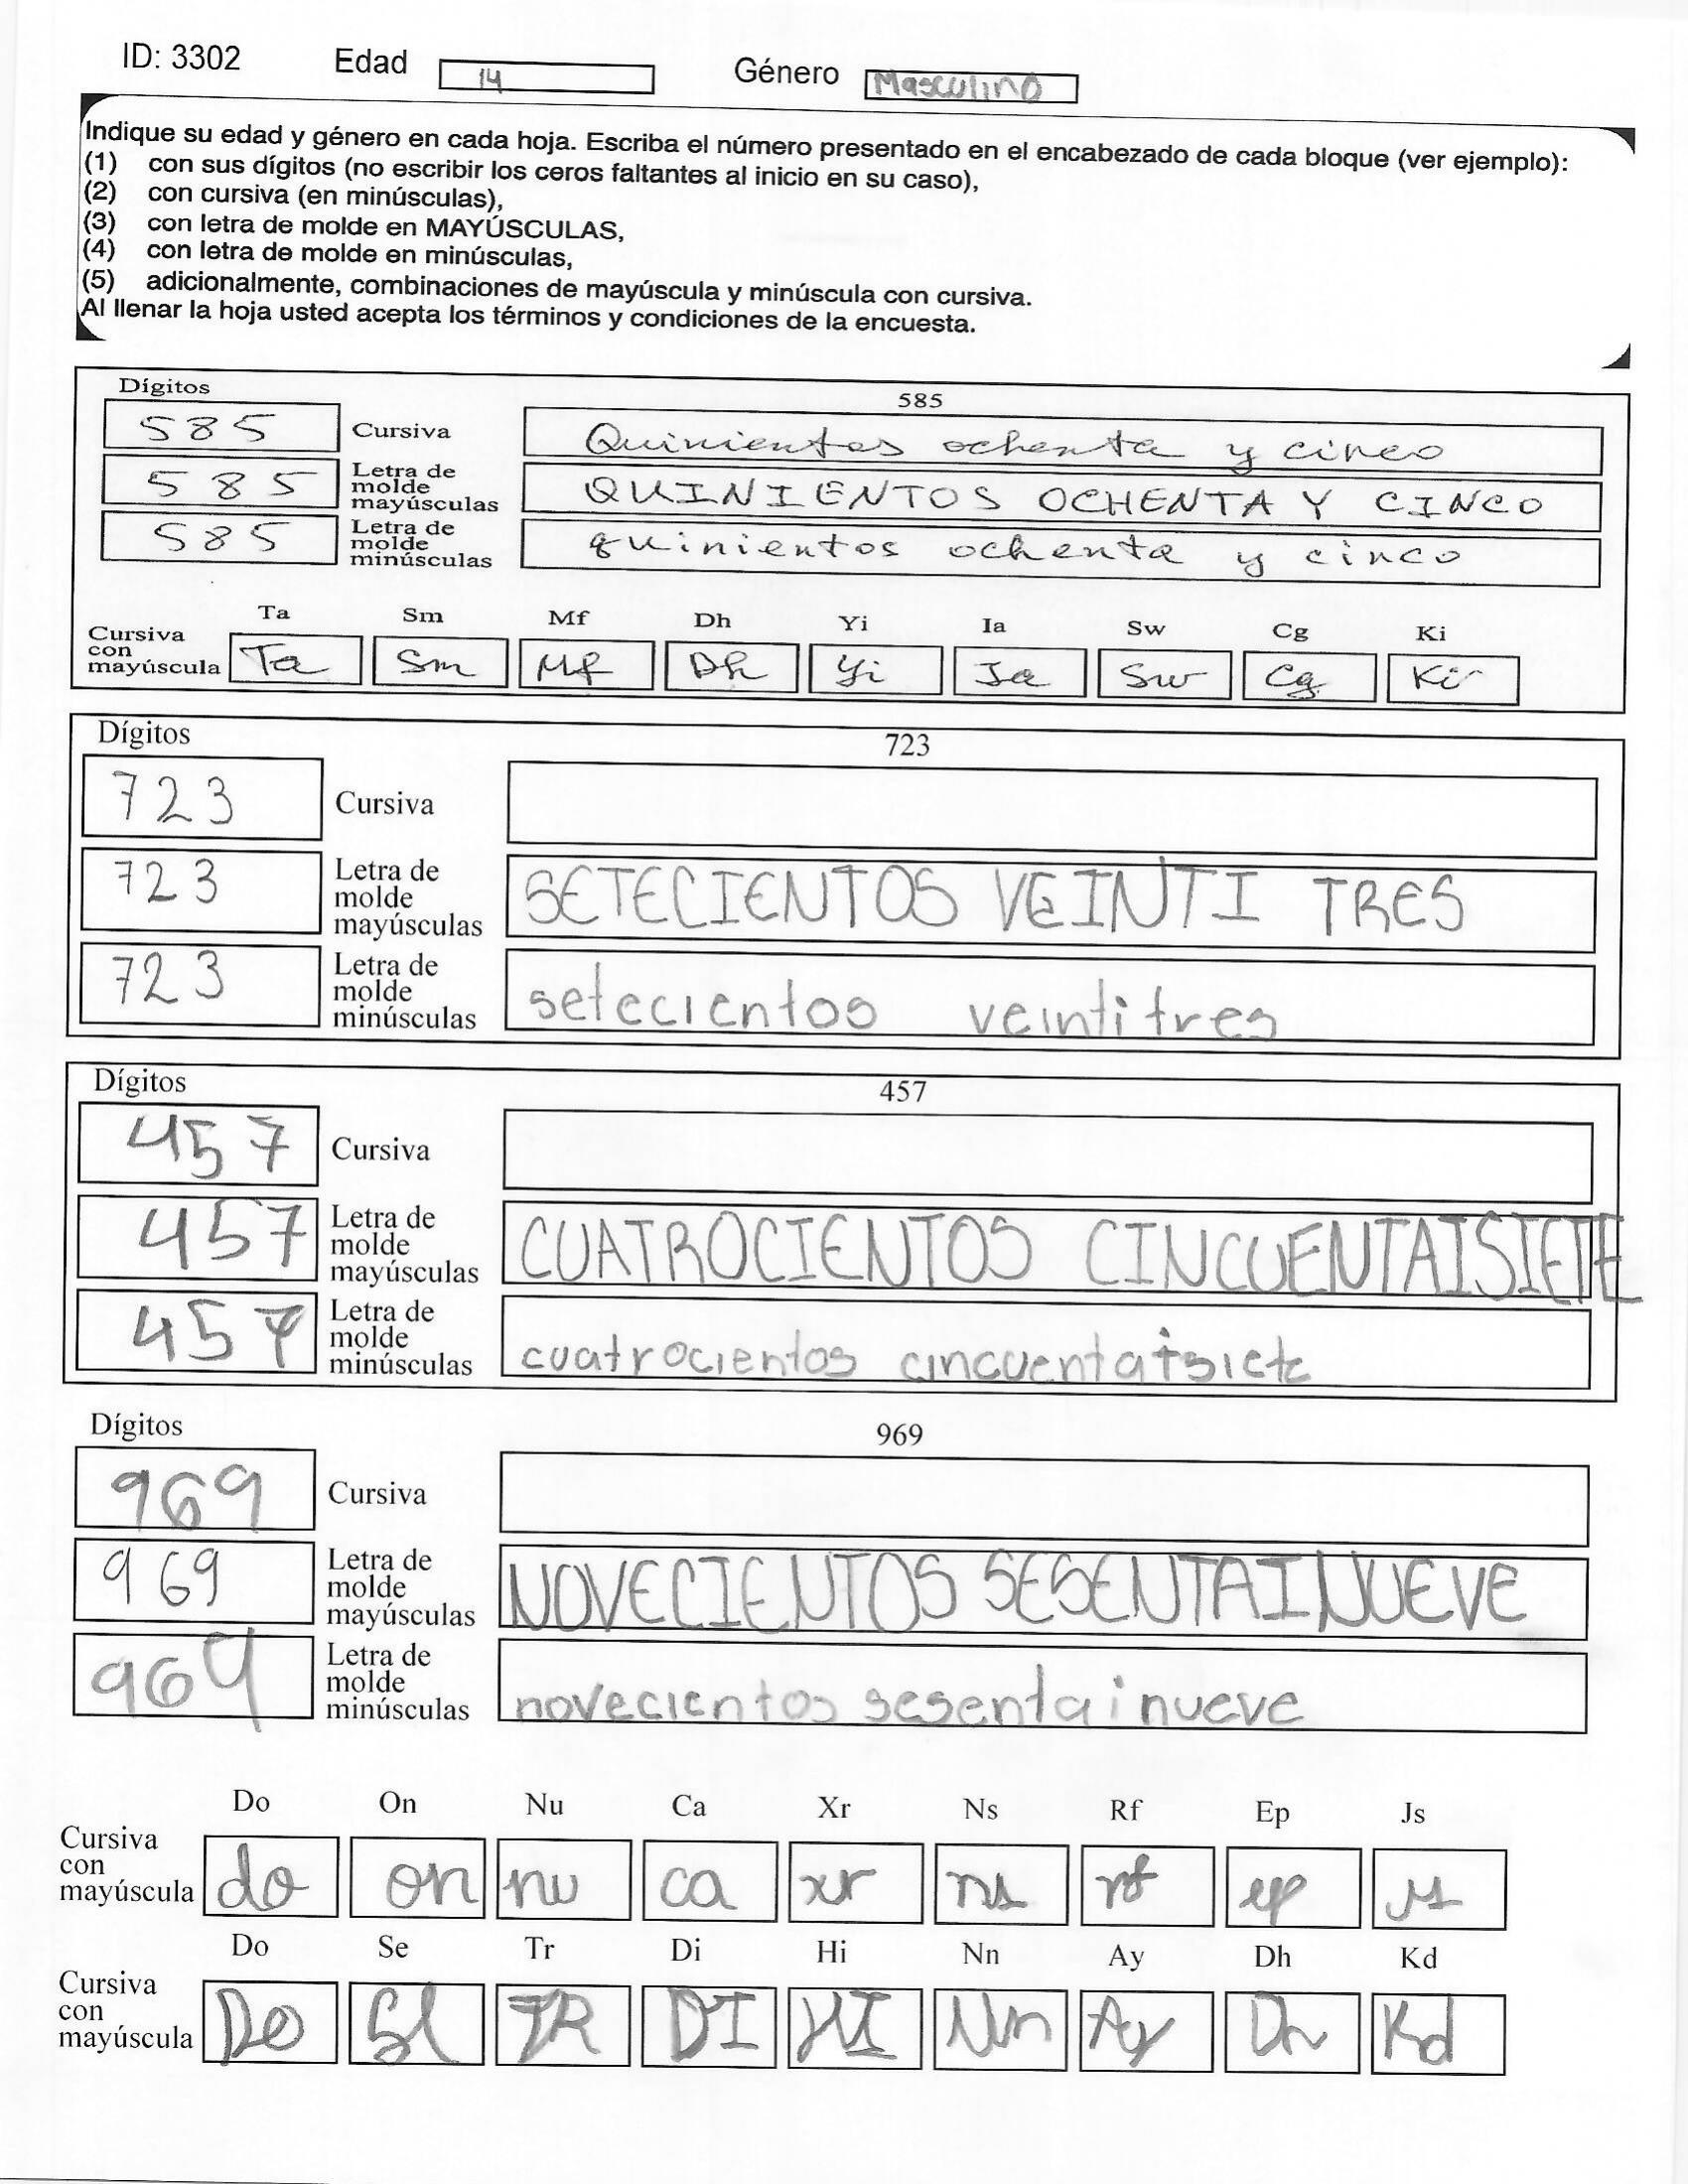 ID: 3302 Edad 14 Género Masculino
Indique su edad y género en cada hoja. Escriba el número presentado en el encabezado de cada bloque (ver ejemplo):
(1) con sus dígitos (no escribir los ceros faltantes al inicio en su caso),
(2) con cursiva (en minúsculas),
(3) con letra de molde en MAYÚSCULAS,
(4) con letra de molde en minúsculas,
(5) adicionalmente, combinaciones de mayúscula y minúscula con cursiva.
Al llenar la hoja usted acepta los términos y condiciones de la encuesta.
Dígitos 585
585 Cursiva Quinientos ochenta y cinco
585 Letra de molde mayúsculas QUINIENTOS OCHENTA Y CINCO
585 Letra de molde minúsculas quinientos ochenta y cinco
Ta Sm Mf Dh Yi Ia Sw Cg Ki
Cursiva con mayúscula Ta Sm Mf Dh Yi Ia Sw Cg Ki
Dígitos 723
723 Cursiva
723 Letra de molde mayúsculas SETECIENTOS VEINTI TRES
723 Letra de molde minúsculas setecientos veintitres
Dígitos 457
457 Cursiva
457 Letra de molde mayúsculas CUATROCIENTOS CINCUENTAISIETE
457 Letra de molde minúsculas cuatrocientos cincuentaisiete
Dígitos 969
969 Cursiva
969 Letra de molde mayúsculas NOVECIENTOS SESENTAINUEVE
969 Letra de molde minúsculas novecientos sesentainueve
Do On Nu Ca Xr Ns Rf Ep Js
Cursiva con mayúscula do on nu ca xr ns rf ep js
Do Se Tr Di Hi Nn Ay Dh Kd
Cursiva con mayúscula Do Se TR DI HI Nn Ay Dh Kd